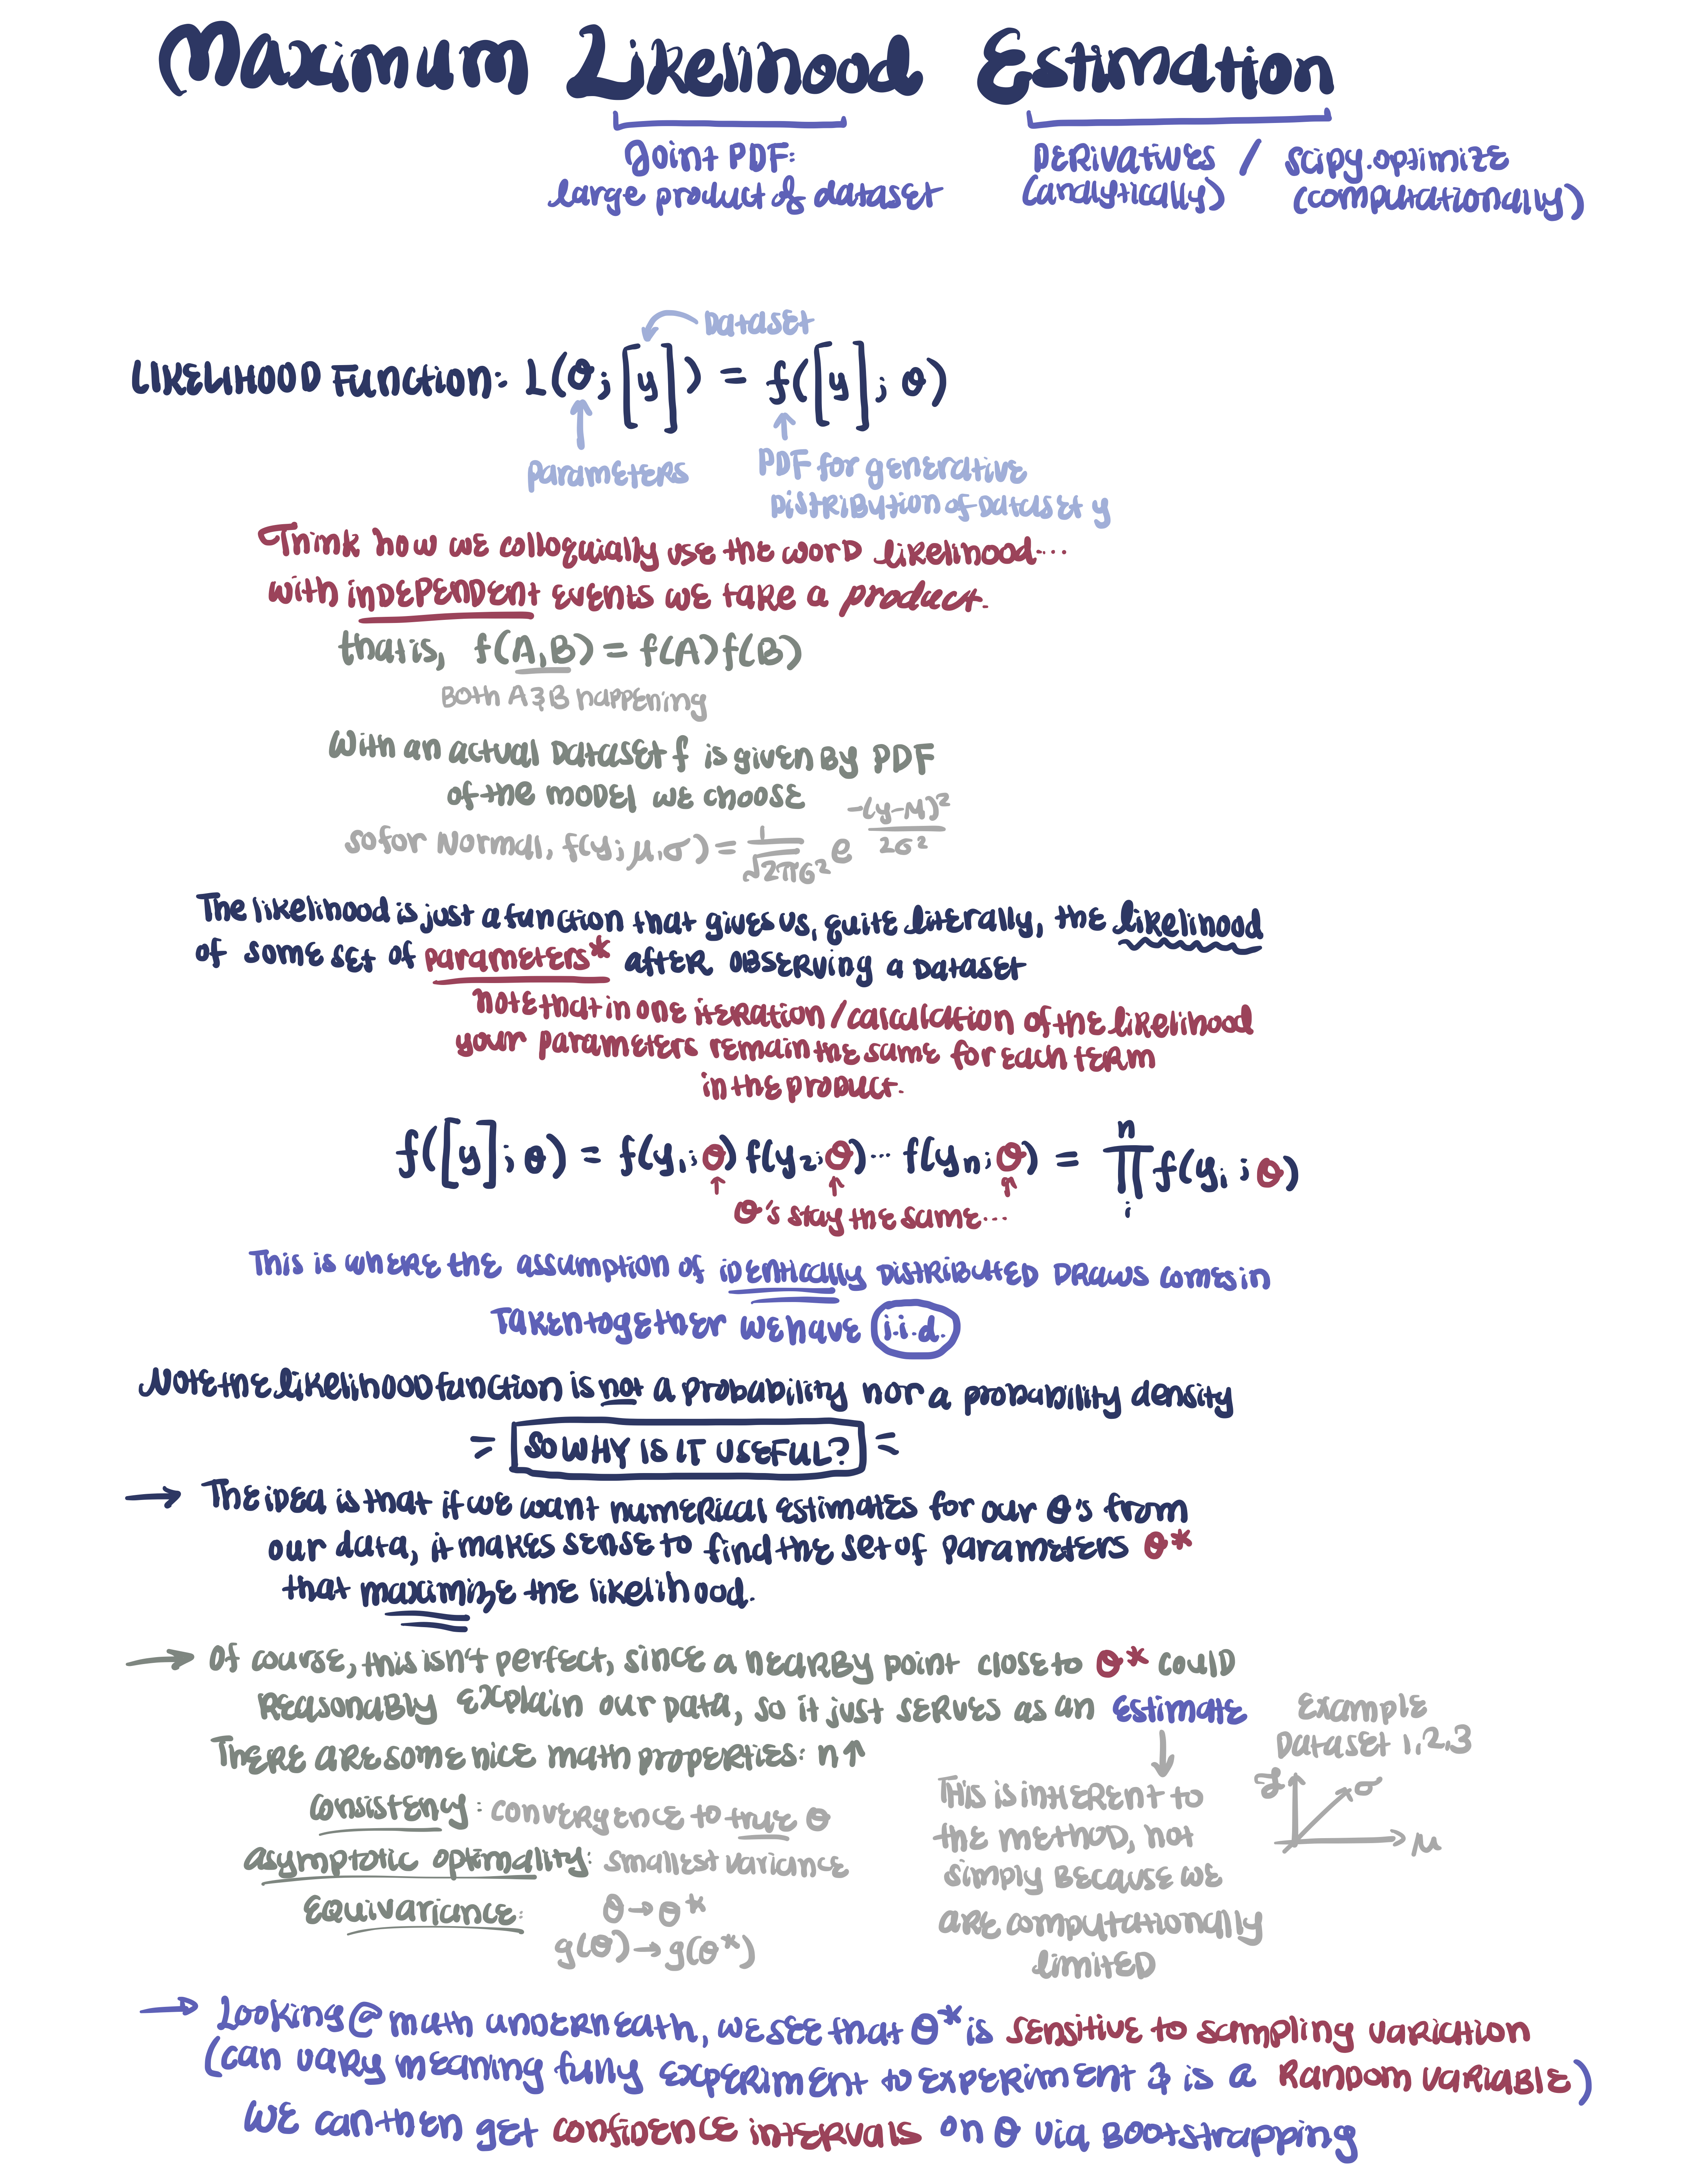 Maximum Likelihood Estimation
Joint PDF: DERIVATIVES / scipy.optimize
large product of dataset (analytically) (computationally)
Dataset
LIKELIHOOD Function: L(θ; [y]) = f([y]; θ)
parameters
PDF for generative
Distribution of Dataset y
Think how we colloquially use the word likelihood...
with independent events we take a product.
that is, f(A,B) = f(A)f(B)
Both A & B happening
With an actual dataset f is given by PDF
of the model we choose
so for Normal, f(y; μ, σ) = 1/√2πσ² e^(-(y-μ)²/2σ²)
The likelihood is just a function that gives us, quite literally, the likelihood
of some set of parameters* after observing a dataset
note that in one iteration/calculation of the likelihood
your parameters remain the same for each term
in the product.
f([y]; θ) = f(y₁; θ) f(y₂; θ)... f(yn; θ) = ∏ᵢⁿ f(yᵢ; θ)
θ's stay the same...
This is where the assumption of identically distributed draws comes in
Taken together we have i.i.d.
Note the likelihood function is not a probability nor a probability density
= SO WHY IS IT USEFUL? =
→ The idea is that if we want numerical estimates for our θ's from
our data, it makes sense to find the set of parameters θ*
that maximize the likelihood.
→ Of course, this isn't perfect, since a nearby point close to θ* could
reasonably explain our data, so it just serves as an estimate
There are some nice math properties: n↑
consistency: convergence to true θ
asymptotic optimality: smallest variance
equivariance: θ → θ*
g(θ) → g(θ*)
This is inherent to
the method, not
simply because we
are computationally
limited
Example
Dataset 1,2,3
L σ
μ
→ Looking @ math underneath, we see that θ* is sensitive to sampling variation
(can vary meaningfully experiment to experiment & is a random variable)
We can then get confidence intervals on θ via bootstrapping